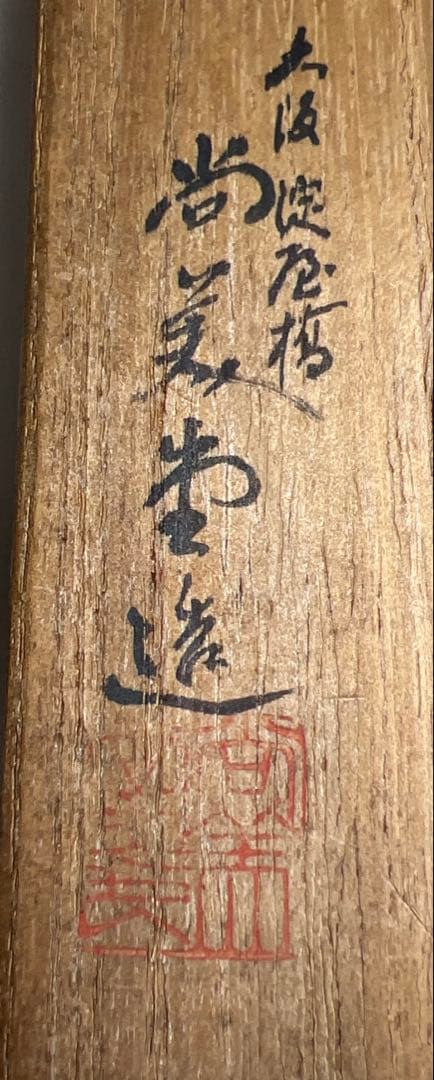 大阪淀屋橋
尚美堂造